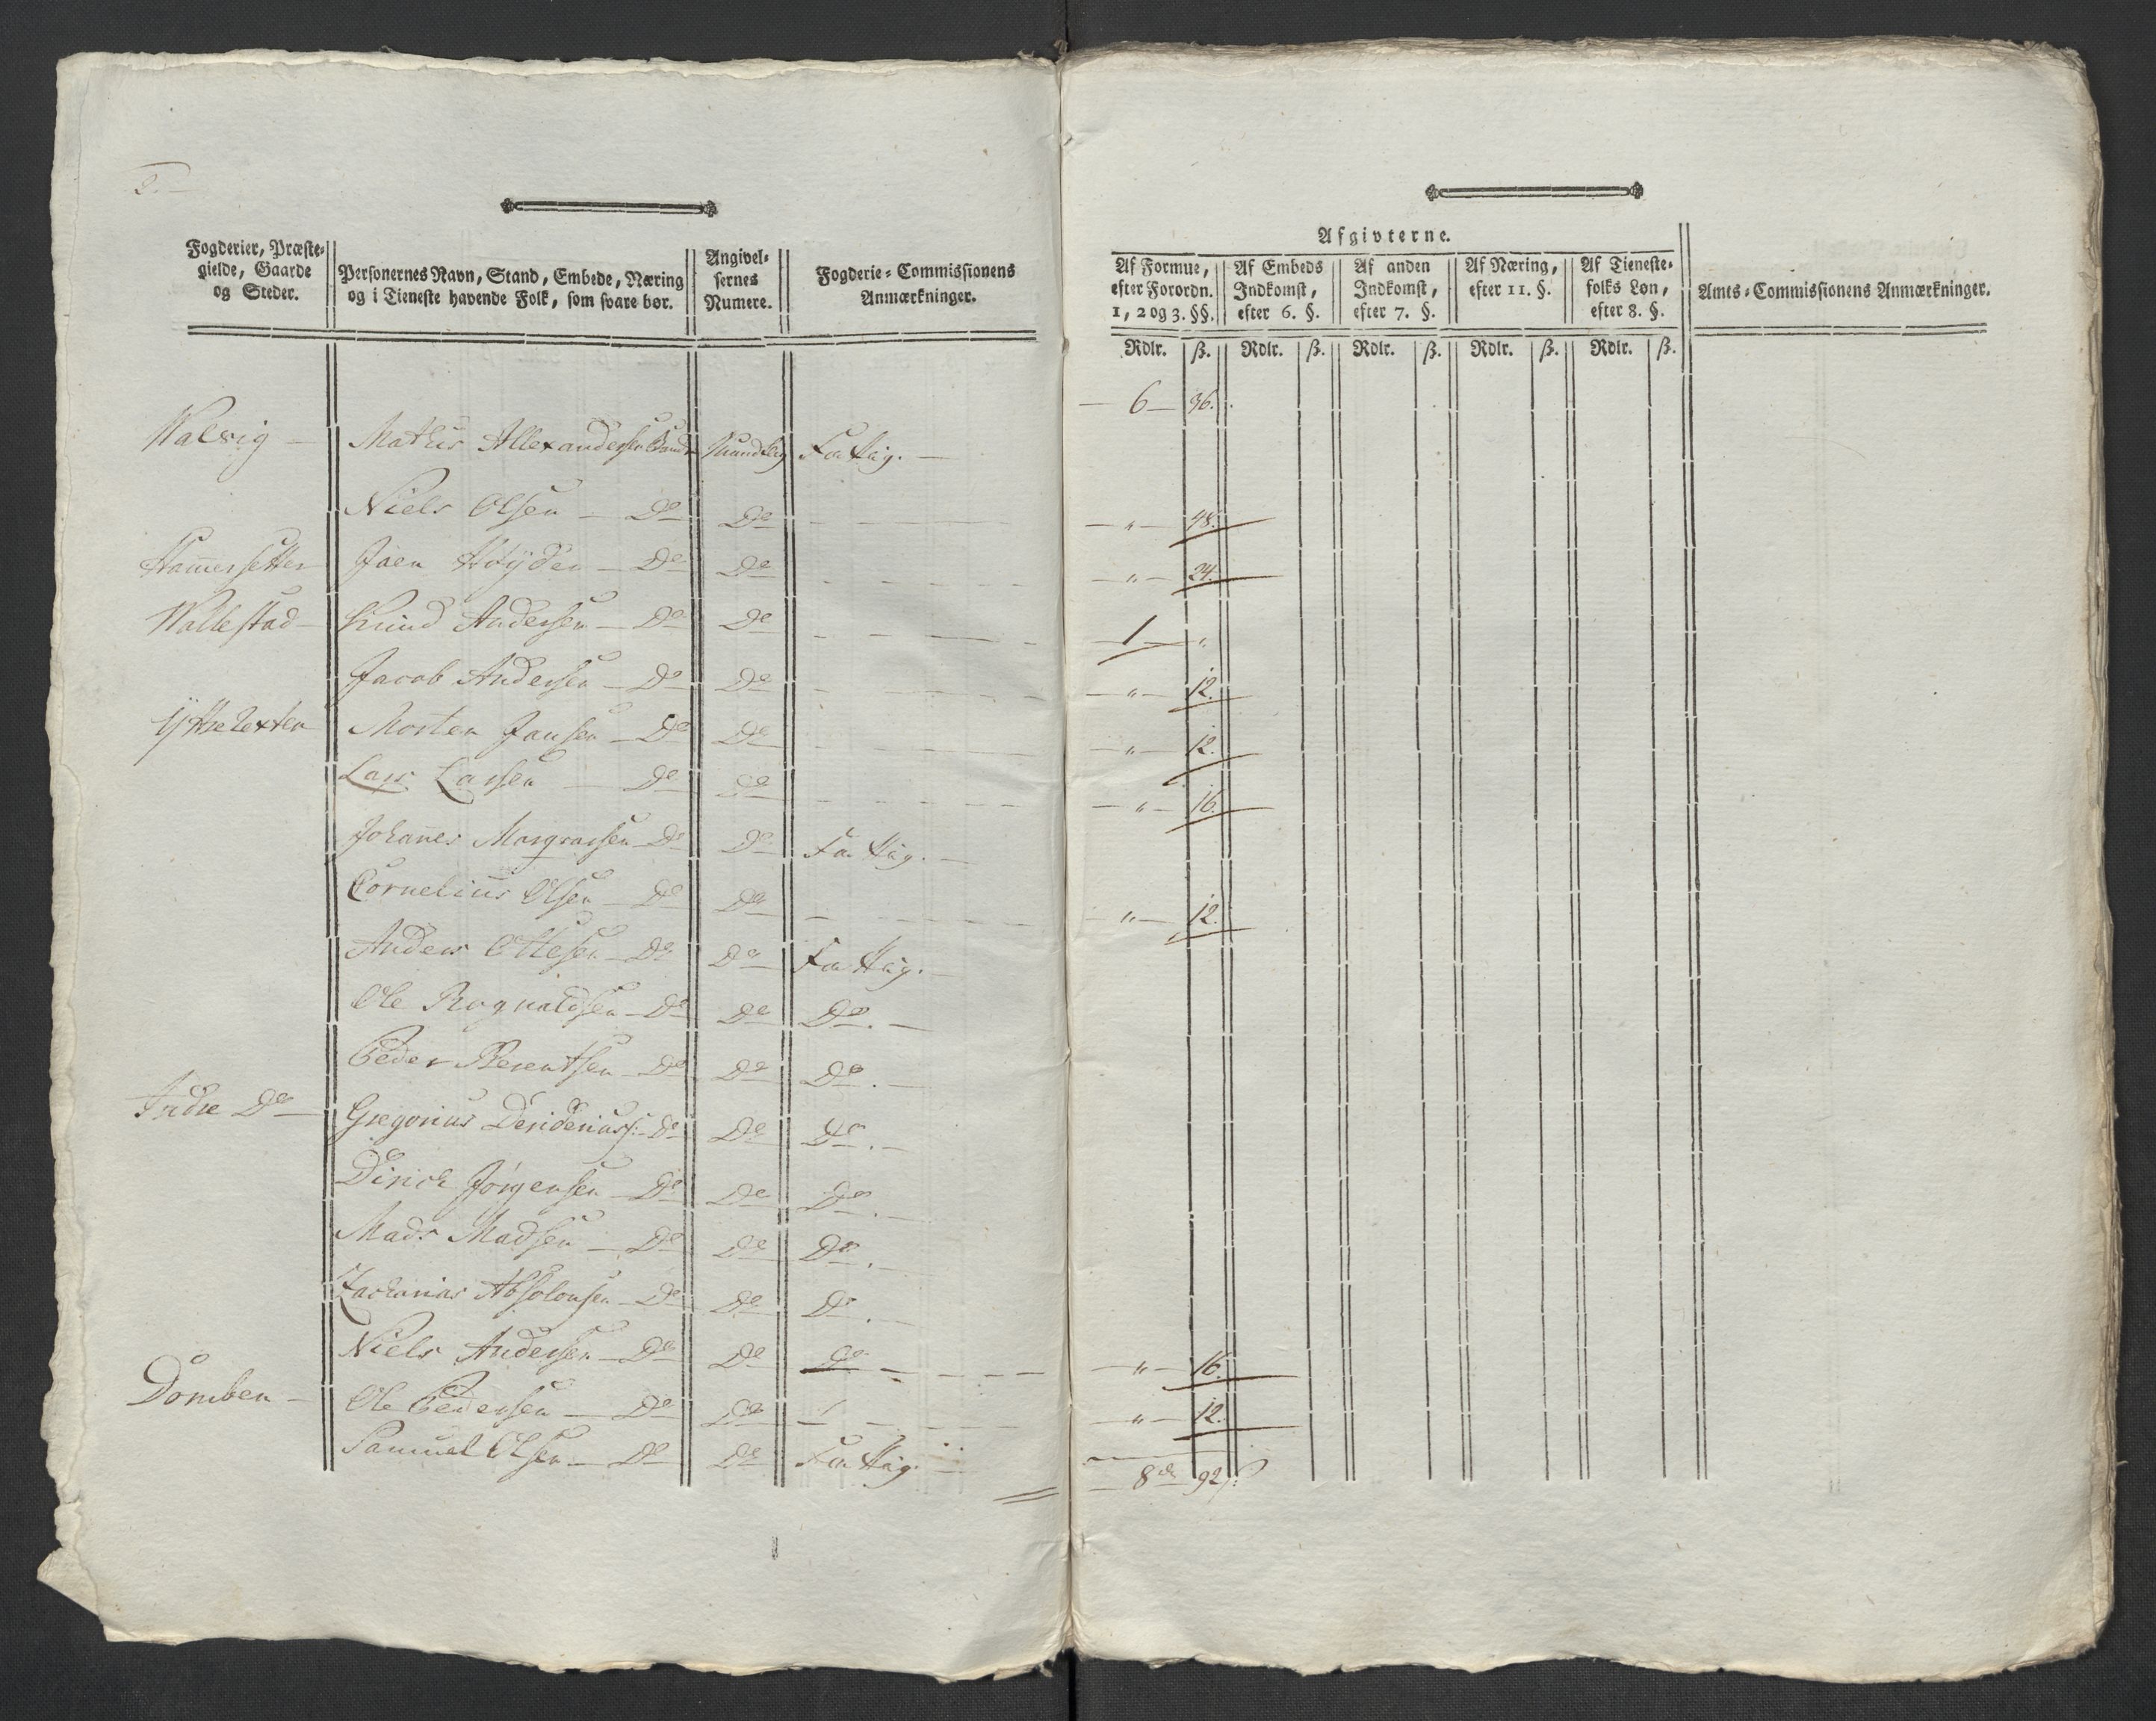 2.
Fogderier, Præste-
gielde, Gaarde
og Steder.
Personernes Navn, Stand, Embede, Næring
og i Tieneste havende Folk, som svare bør.
Angivel-
sernes
Numere.
Fogderie-Commissionens
Anmærkninger.
Afgivterne.
Af Formue,
efter Forordn.
1, 2 og 3. §§.
Af Embeds
Indkomst,
efter 6. §.
Af anden
Indkomst,
efter 7. §.
Af Næring,
efter 11. §.
Af Tieneste-
folks Løn,
efter 8. §.
Amts-Commissionens Anmærkninger.
Rdlr. ß. Rdlr. ß. Rdlr. ß. Rdlr. ß. Rdlr. ß.
6 36.
Walvig Mathis Allexandersen Bonde Mundtlig Fattig.
Niels Olsen Do Do " 48.
Hammersetter Joen Do Do " 24.
Wallestad Knud Andersen Do Do 1 "
Jacob Andersen Do Do " 12.
Yttre Texten Morten Jansen Do Do " 12.
Lars Larsen Do Do " 16.
Johannes Do Do Fattig.
Cornelius Olsen Do Do " 12.
Anders Ottesen Do Do Fattig.
Ole Rognaldsen Do Do Do.
Peder Berentsen Do Do Do.
Indre Do Gregorius Do Do Do.
Dirich Jørgensen Do Do Do.
Mads Madsen Do Do Do.
Zacharias Absolonsen Do Do Do.
Niels Andersen Do Do " 16.
Domben Ole Pedersen Do Do " 12.
Samuel Olsen Do Do Fattig.
8 92